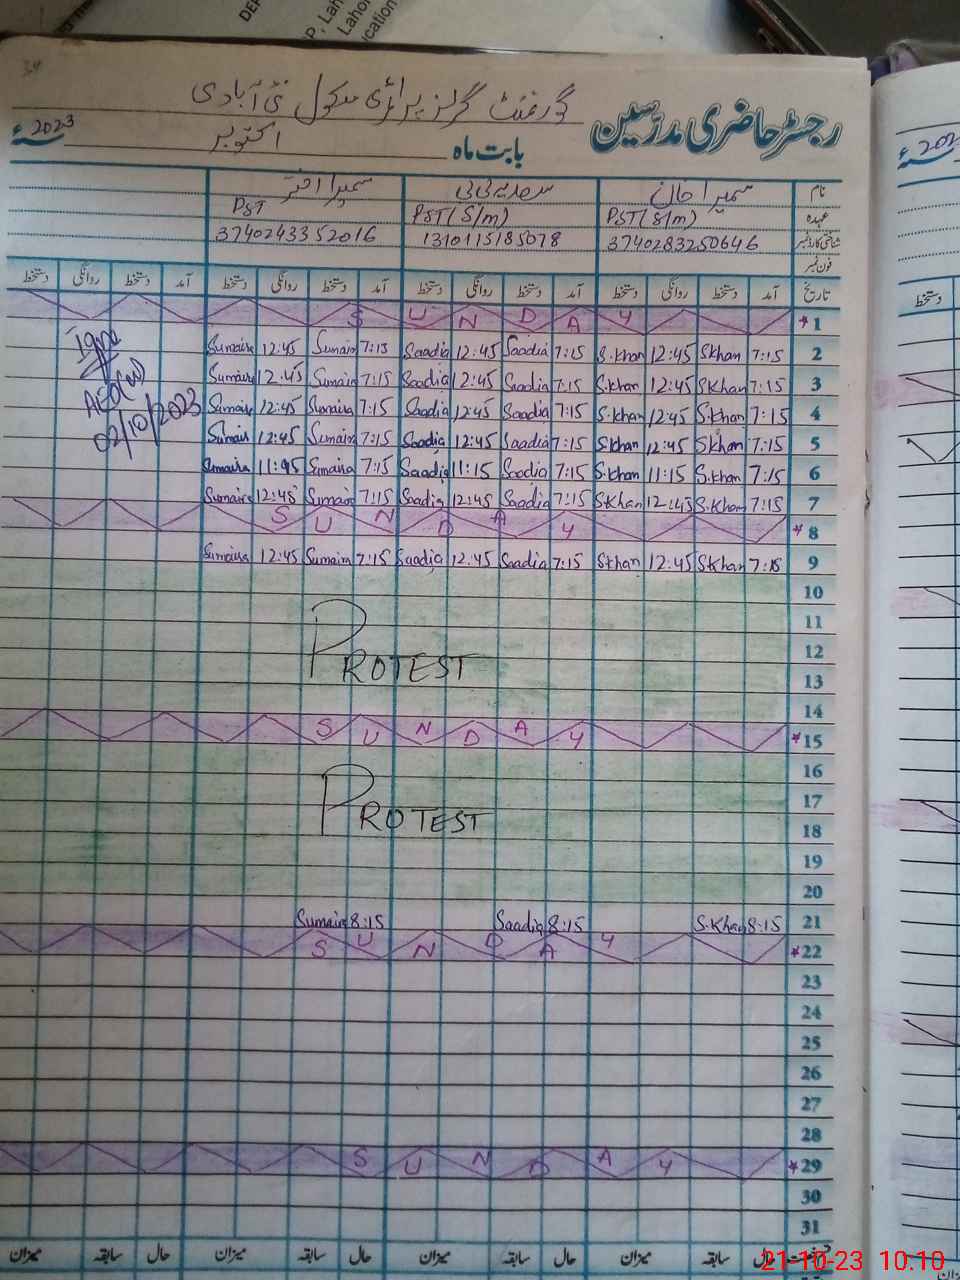 DEP
P, Lah
Lahor
cation
34
گورنمنٹ گرلز پرائمری سکول نئی آبادی
رجسٹر حاضری مدرسین
بابت ماہ اکتوبر 2023ء
نام سمیرا خان سعدیہ بی بی سمیرا اختر
عہدہ PST(S/m) PST(S/m) PST
شناختی کارڈ نمبر 3740283250646 1310115185078 3740243352016
فون نمبر
تاریخ آمد دستخط روانگی دستخط آمد دستخط روانگی دستخط آمد دستخط روانگی دستخط آمد دستخط روانگی دستخط
S U N D A Y *1
Sumaira 12:45 Sumaira 7:15 Saadia 12:45 Saadia 7:15 S.khan 12:45 Skhan 7:15 2
Sumaira 12:45 Sumaira 7:15 Saadia 12:45 Saadia 7:15 S.khan 12:45 SKhan 7:15 3
Sumaira 12:45 Sumaira 7:15 Saadia 12:45 Saadia 7:15 S.khan 12:45 S.khan 7:15 4
Sumair 12:45 Sumaira 7:15 Saadia 12:45 Saadia 7:15 S.khan 12:45 S.khan 7:15 5
Sumaira 11:45 Sumaira 7:15 Saadia 11:15 Saadia 7:15 S.khan 11:15 S.khan 7:15 6
Sumaira 12:45 Sumaira 7:15 Saadia 12:45 Saadia 7:15 S.Khan 12:45 S.Khan 7:15 7
S U N D A Y *8
Sumaira 12:45 Sumaira 7:15 Saadia 12:45 Saadia 7:15 S.khan 12:45 S.Khan 7:15 9
AEO(W)
02/10/2023
10
11
12
PROTEST
13
14
S U N D A Y *15
16
17
PROTEST
18
19
20
Sumair 8:15 Saadia 8:15 S.Khan 8:15 21
S U N D A Y *22
23
24
25
26
27
28
S U N D A Y *29
30
31
حال سابقہ میزان حال سابقہ میزان حال سابقہ میزان حال سابقہ میزان
21-10-23 10.10